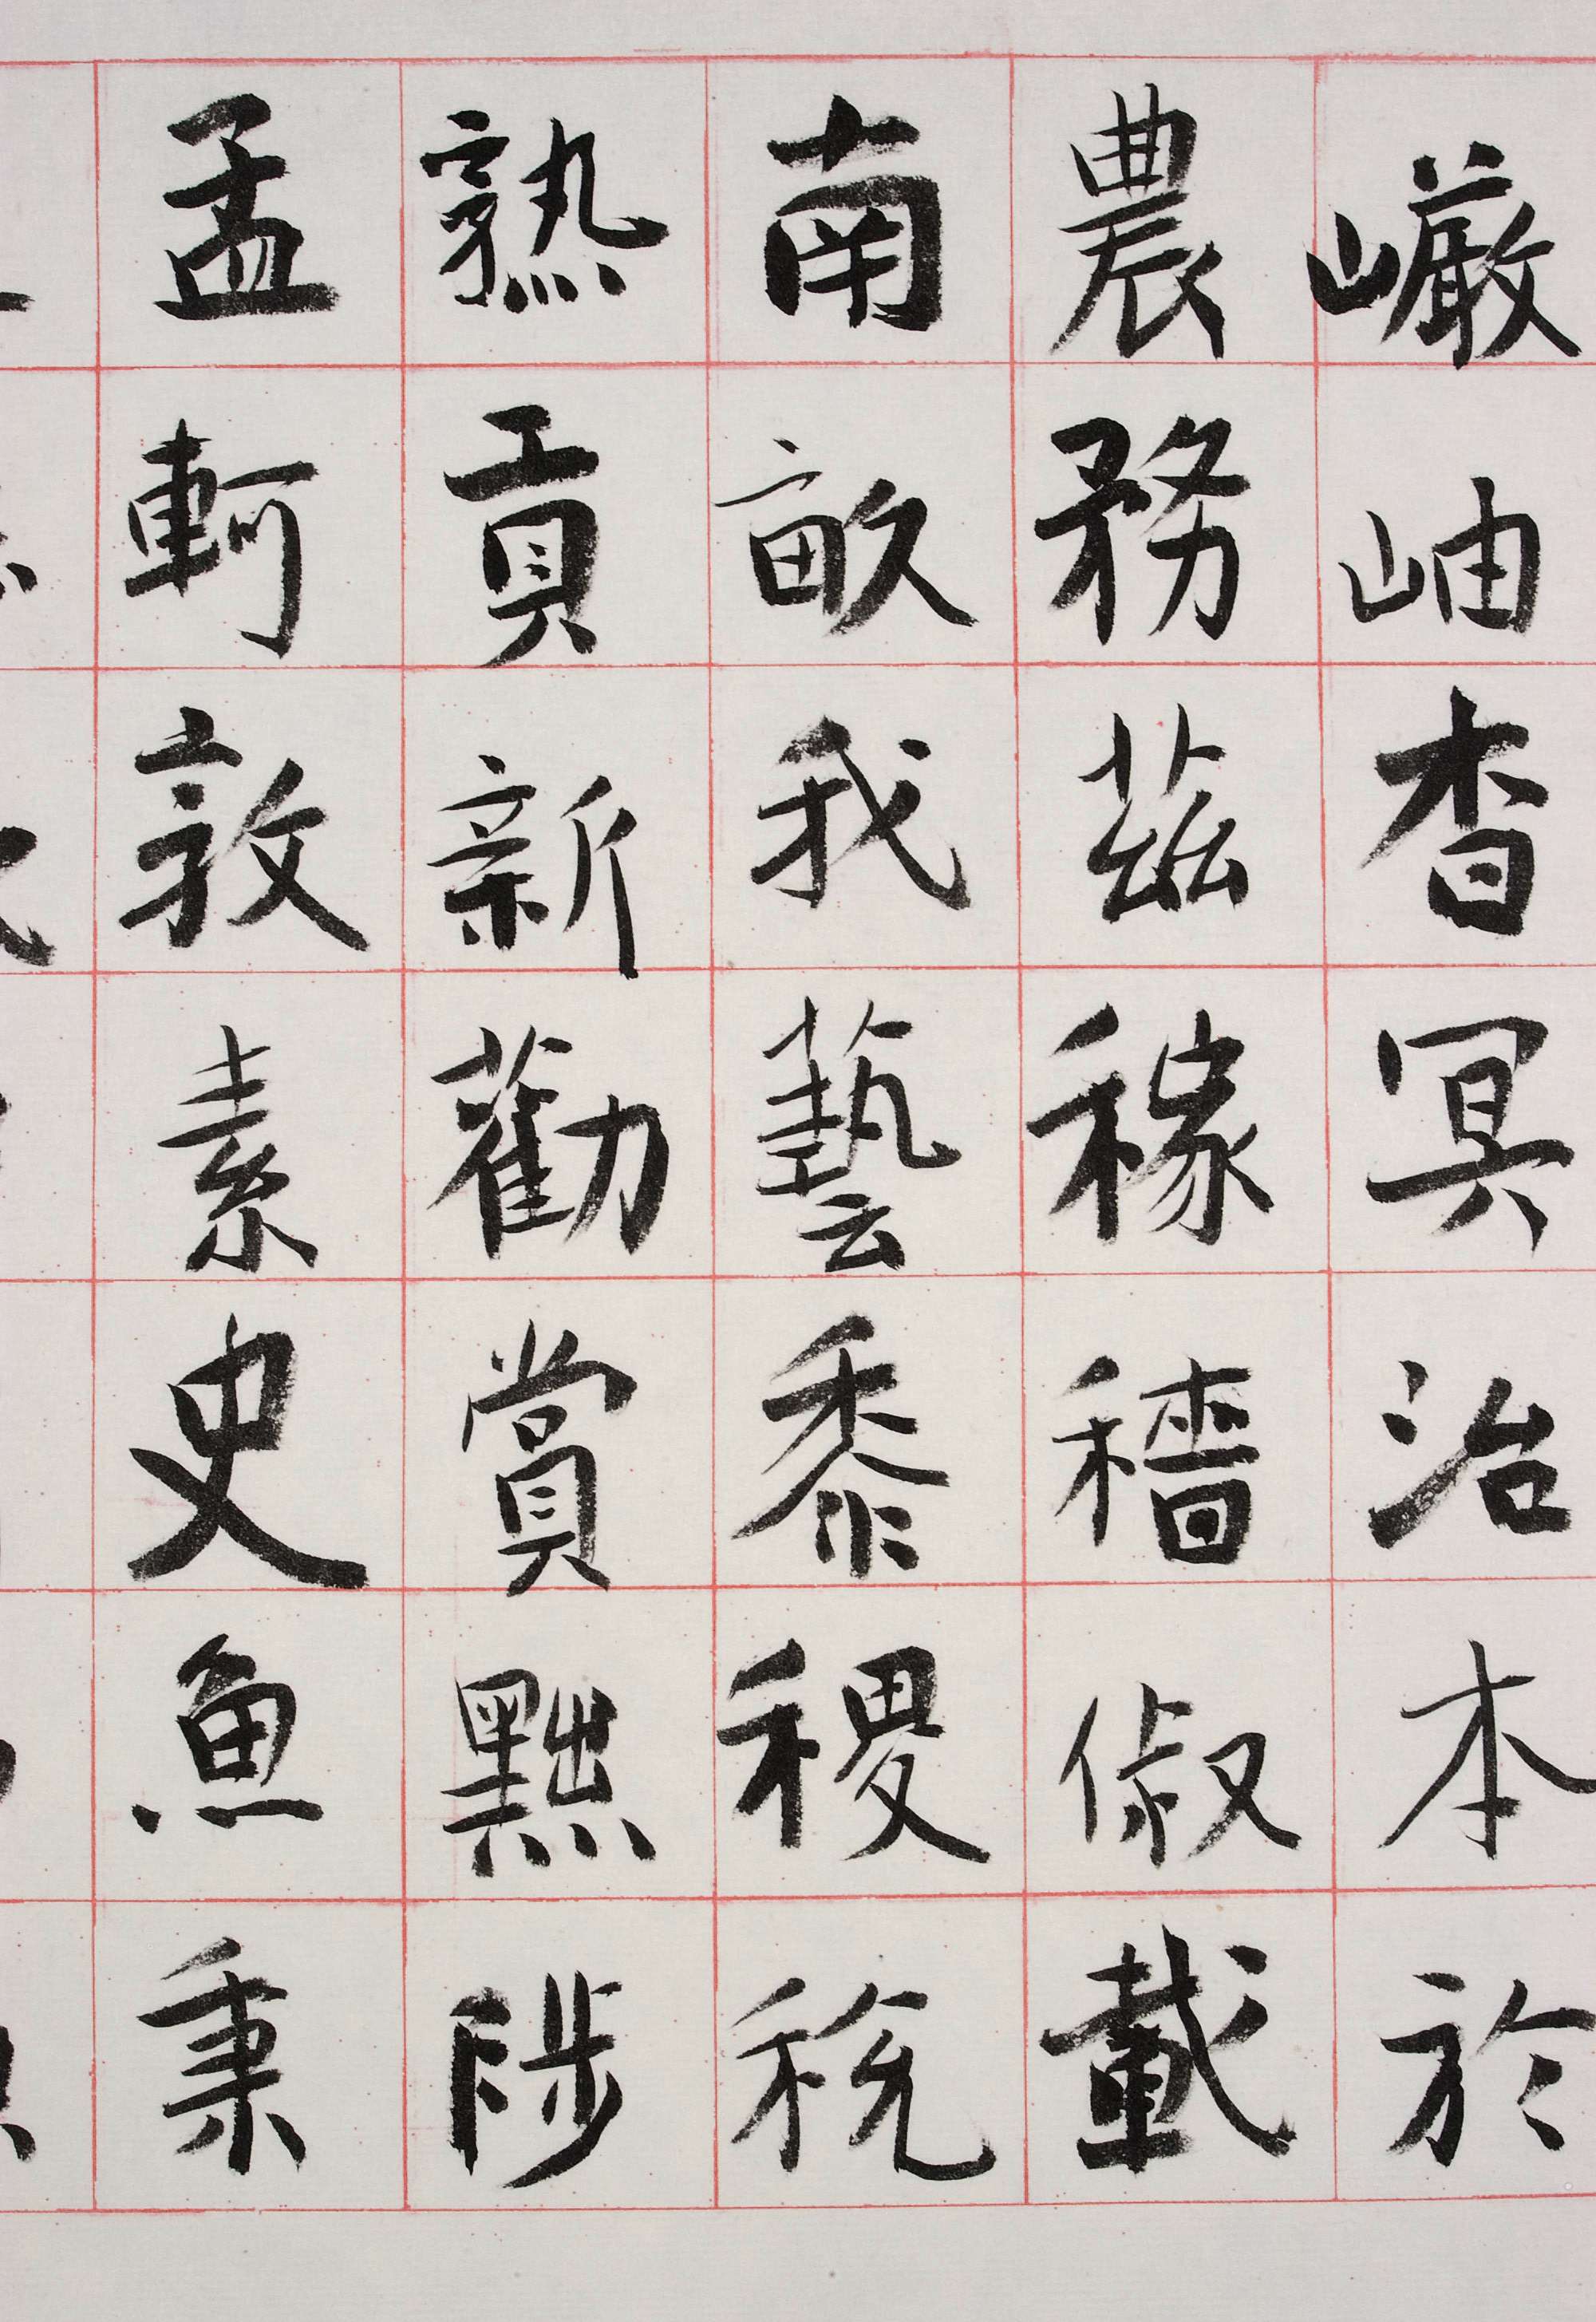 巖岫杳冥治本於
農務茲稼穡俶載
南畝我藝黍稷稅
熟貢新勸賞黜陟
孟軻敦素史魚秉